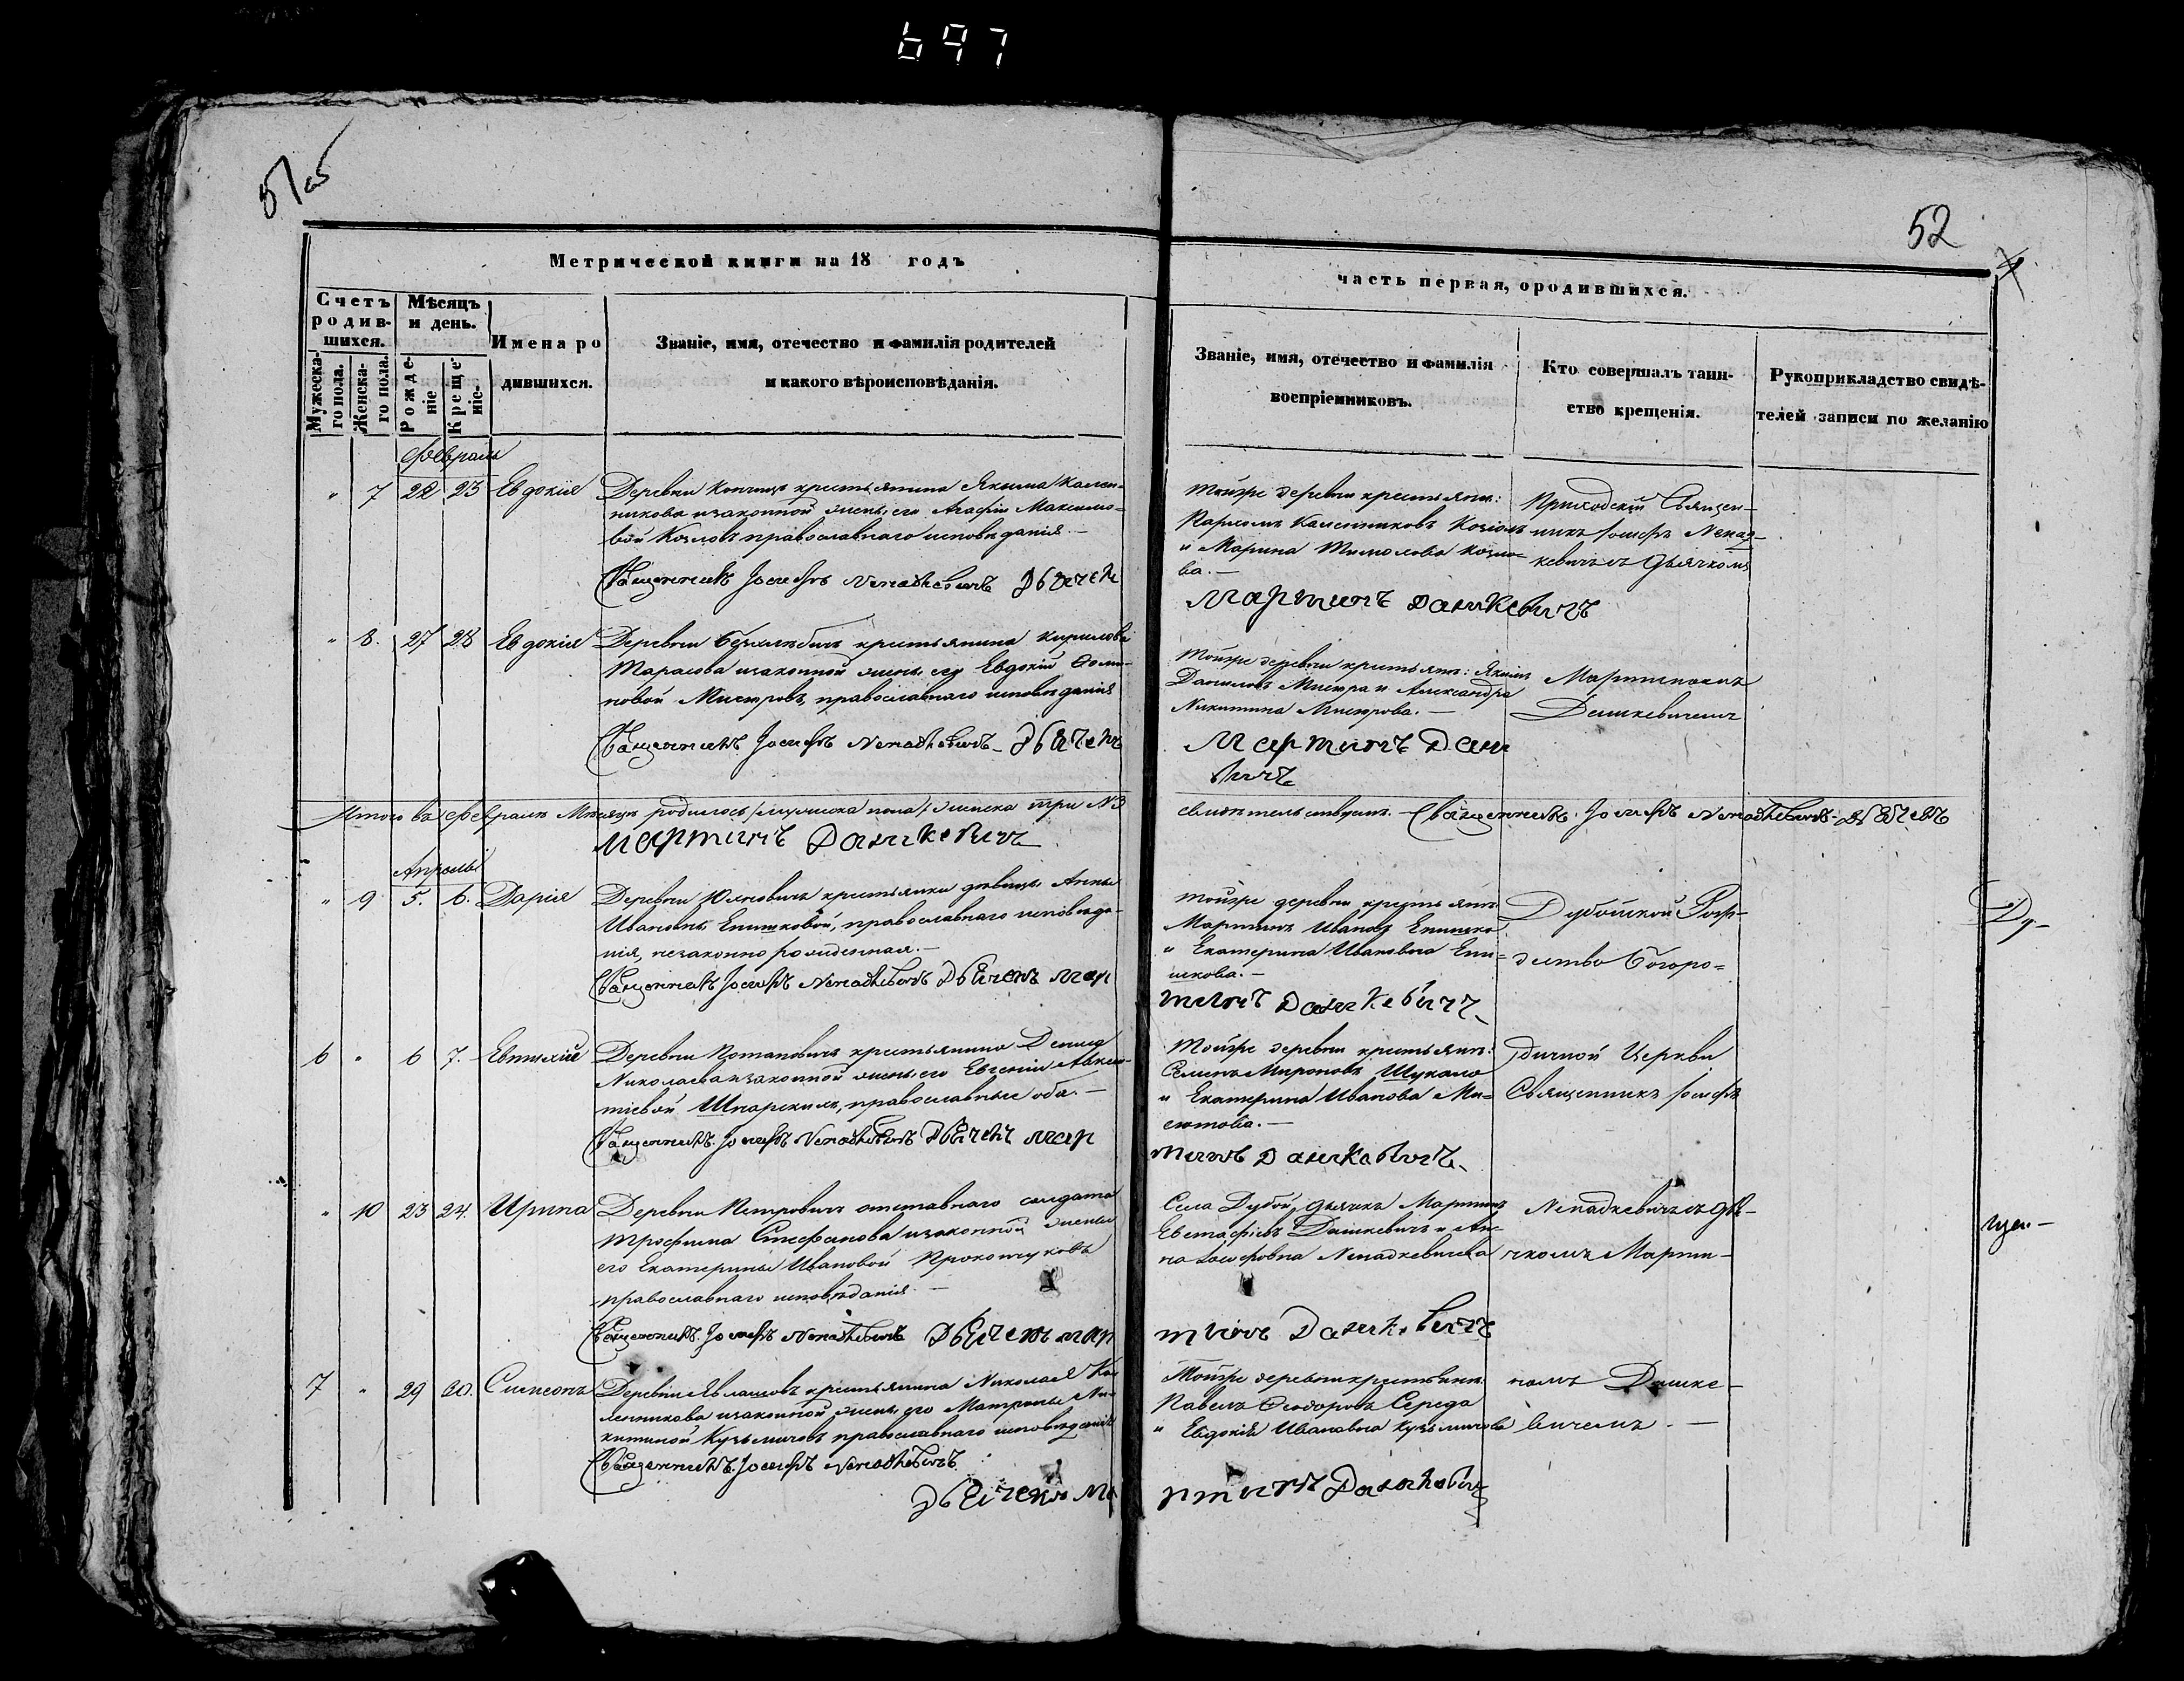 697
52
Метрической книги на 18 годъ
часть первая, ородившихся.
Счетъ родив-шихся.
Мужеска-го пола.
Женска-го пола.
Мѣсяцъ и день.
Рожде-ніе
Креще-ніе.
Имена ро
дившихся.
Званіе, имя, отечество и фамилія родителей
и какого вѣроисповѣданія.
Званіе, имя, отечество и фамилія
воспріемниковъ.
Кто совершалъ таин-
ство крещенія.
Рукоприкладство свидѣ-
телей записи по желанію
Февраль
" 7 22 23 Евдокія
Деревни крестьянина Якима Кален-
никова и законной жены его Агафіи Максимо-
вой Козловъ православнаго исповѣданія. —
Священникъ Іосифъ Ненадкевичъ Дьячекъ
Тойже деревни крестьян:
Пархомъ Каленниковъ Козловъ
и Марина Козло-
ва. —
Приходскій Священ-
никъ Іосифъ Ненад-
кевичъ съ Дьячкомъ
Мартинъ Дашкевичъ
" 8. 27 28 Евдокія
Деревни крестьянина Кирилова
Тарасова и законной жены его Евдокіи
новой Мистровъ, православнаго исповѣданія
Священникъ Іосифъ Ненадкевичъ Дьячекъ
Тойже деревни крестьян: Якимъ
Даниловъ Мистра и Александра
Никитина Мистрова. —
Мартиномъ
Дашкевичемъ
Мартинъ Даш
вичъ
Итого въ Февралѣ Мѣсяцѣ родилось женска три №3
свидѣтельствуемъ. — Священникъ Іосифъ Ненадкевичъ Дьячекъ
Мартинъ Дашкевичъ
Апрель
" 9 5. 6. Дарія
Деревни крестьянки дѣвицы Анны
Ивановны Епишковой, православнаго исповѣда-
нія, незаконно рожденная. —
Священникъ Іосифъ Ненадкевичъ Дьячекъ Мар
Тойже деревни крестьян:
Мартинъ Ивановъ Епишко
и Екатерина Иванова Епи-
шкова. —
Дубойской Рож-
дество Богоро-
Ду-
тинъ Дашкевичъ
6 " 6 7. Евтихій
Деревни Потаповичъ крестьянина Денида
Николаева и законной жены его Евгеніи Авксен-
тіевой Шпарскихъ, православные оба. —
Священникъ Іосифъ Ненадкевичъ Дьячекъ Мар
Тойже деревни крестьян:
Семенъ Мироновъ Шукало
и Екатерина Иванова Ми-
дичной Церкви
Священникъ Іосифъ
тинъ Дашкевичъ
" 10 23 24. Ирина
Деревни Петровичъ отставнаго солдата
Трофима Стефанова и законной жены
его Екатерины Ивановой
православнаго исповѣданія. —
Священникъ Іосифъ Ненадкевичъ Дьячекъ Мар
Села Дубой, дьячкъ Мартинъ
Евстафіевъ Дашкевичъ и Ан-
на Іосифовна Ненадкевичева
Ненадкевичъ съ Дья-
чкомъ Марти-
тинъ Дашкевичъ
7 " 29 30. Симеонъ
крестьянина Николая Ка-
ленникова и законной жены его Матроны Ни-
китиной Кузьмичовъ православнаго исповѣданія
Священникъ Іосифъ Ненадкевичъ
Дьячекъ Ма
Тойже деревни крестьянин
Павелъ Феодоровъ Середа
и Евдокія Иванова Кузьмичова
номъ Дашке-
вичемъ. —
ртинъ Дашкевич